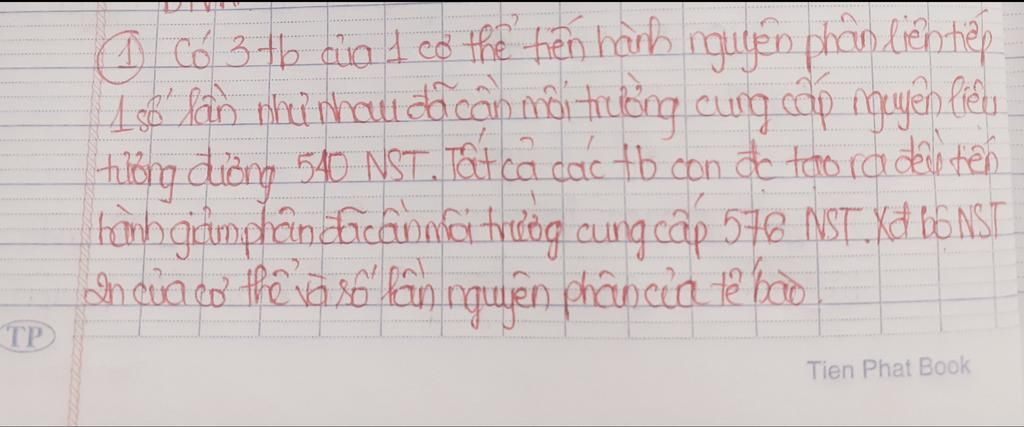 ① Có 3 tb của 1 cơ thể tiến hành nguyên phân liên tiếp
1 số lần như nhau đã cần môi trường cung cấp nguyên liệu
tương đương 540 NST. Tất cả các tb con đc tạo ra đều tiến
hành giảm phân đã cần môi trường cung cấp 576 NST. Xđ bộ NST
2n của cơ thể và số lần nguyên phân của tế bào.
TP
Tien Phat Book